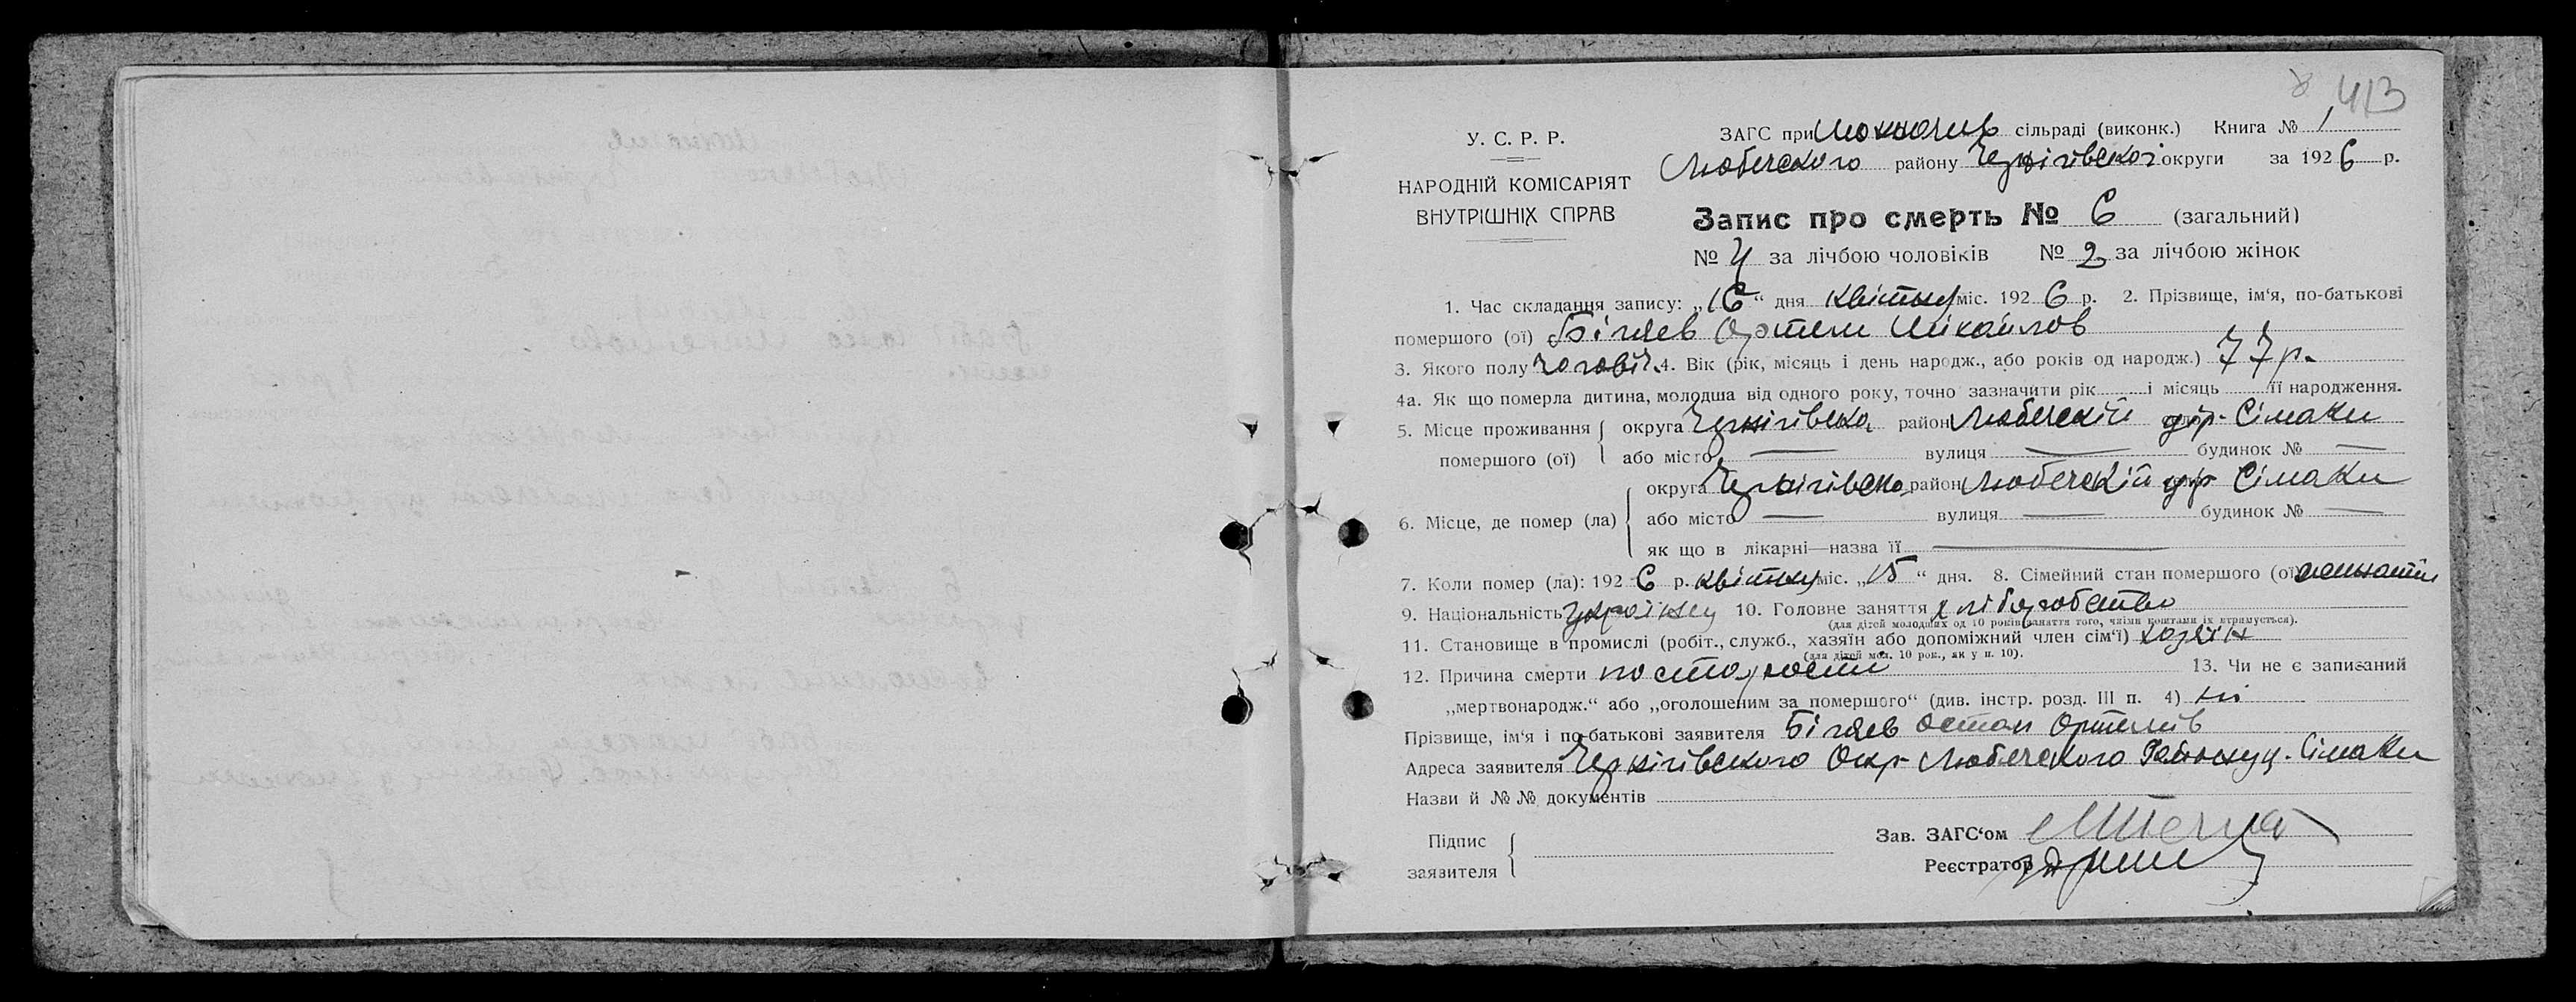 413
У. С. Р. Р.
НАРОДНІЙ КОМІСАРІЯТ
ВНУТРІШНІХ СПРАВ
ЗАГС при сільраді (виконк.) Книга № 1
Любечского району Чернігівскоі округи за 1926 р.
Запис про смерть № 6 (загальний)
№ 4 за лічбою чоловіків № 2 за лічбою жінок
1. Час складання запису: „16“ дня квітня міс. 1926 р. 2. Прізвище, ім‘я, по-батькові
помершого (ої) Біляев Артем Міхайлов
3. Якого полу чоловіч. 4. Вік (рік, місяць і день народж., або років од народж.) 77 р.
4а. Як що померла дитина, молодша від одного року, точно зазначити рік і місяць її народження.
5. Місце проживання помершого (ої) округа Чернігівска район Любечскій Сімаки
або місто — вулиця — будинок № —
6. Місце, де помер (ла) округа Чернігівска район Любечскій Сімаки
або місто — вулиця — будинок № —
як що в лікарні—назва її —
7. Коли помер (ла): 1926 р. квітня міс. „15“ дня. 8. Сімейний стан помершого (ої)
9. Національність 10. Головне заняття хліборобство
(для дітей молодших од 10 років заняття того, чиїми коштами їх втримується).
11. Становище в промислі (робіт., служб., хазяїн або допоміжний член сім‘ї) хазяін
(для дітей мол. 10 рок., як у п. 10).
12. Причина смерти по старости 13. Чи не є записаний
„мертвонародж.“ або „оголошеним за помершого“ (див. інстр. розд. III п. 4) ні
Прізвище, ім‘я і по-батькові заявителя Біляев Остап Артемів
Адреса заявителя Чернігівского Окр. Любечского Сімаки
Назви й №№ документів
Підпис заявителя
Зав. ЗАГС‘ом
Реєстратор